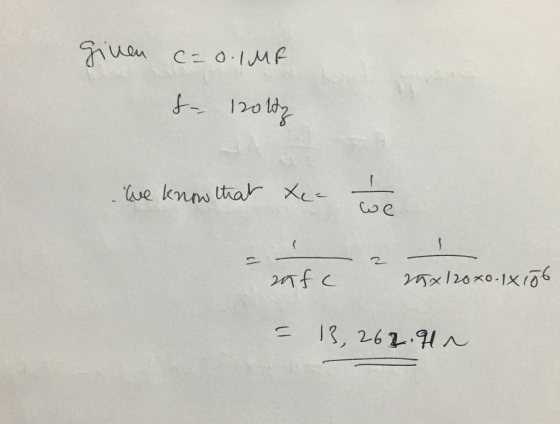 Given C = 0.1 MF
f = 120 Hz
. We know that Xc = 1/ωc
= 1/2πfC = 1/2π×120×0.1×10⁻⁶
= 13, 262.91 Ω